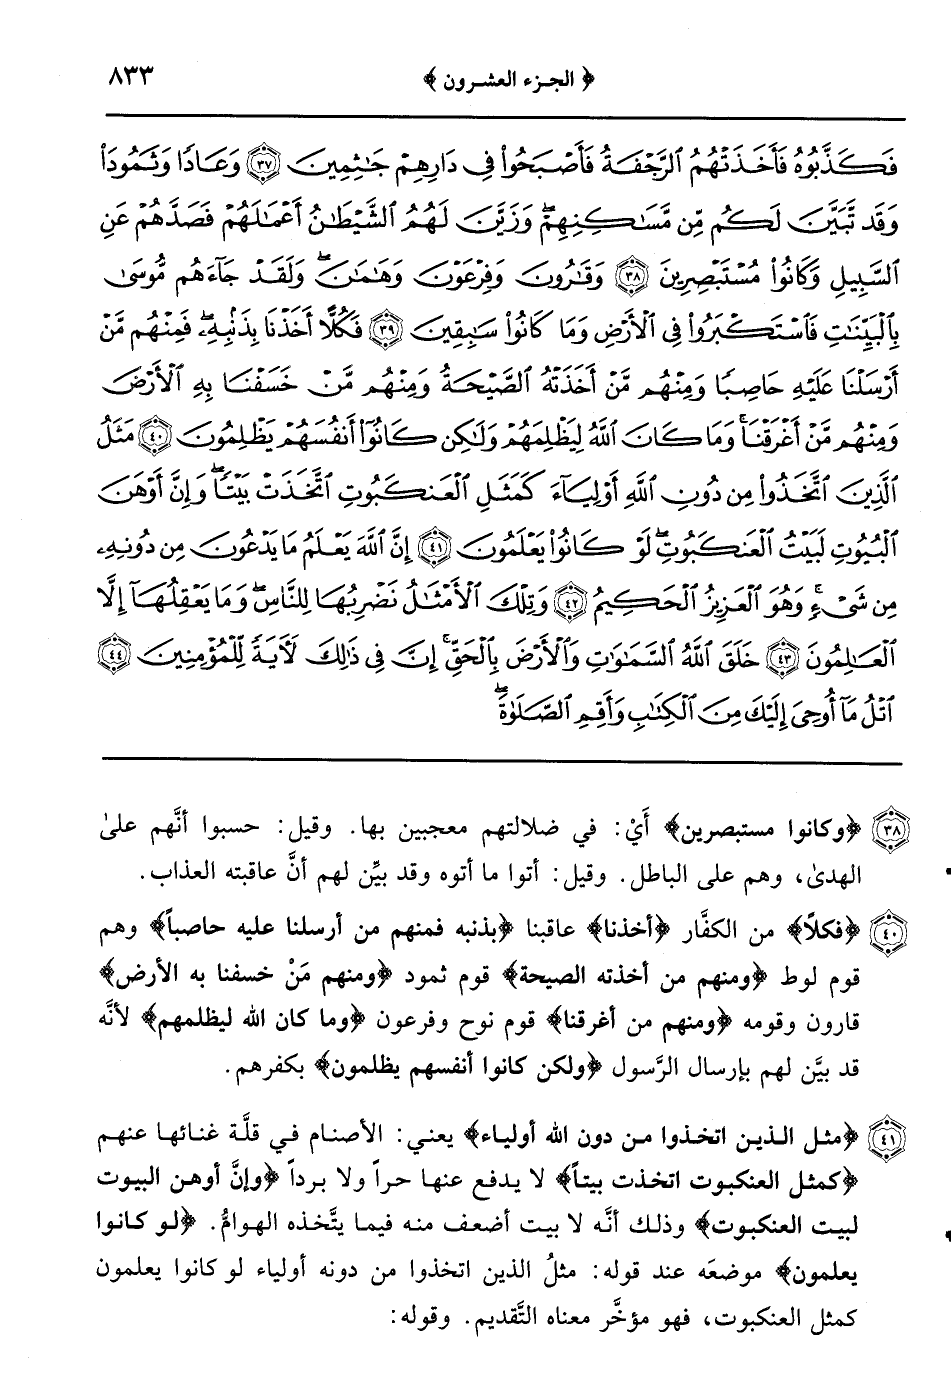 ﴿ الجزء العشرون ﴾ ٨٣٣
فَكَذَّبُوهُ فَأَخَذَتْهُمُ ٱلرَّجْفَةُ فَأَصْبَحُوا۟ فِى دَارِهِمْ جَٰثِمِينَ ٣٧ وَعَادًا وَثَمُودَا۟
وَقَد تَّبَيَّنَ لَكُم مِّن مَّسَٰكِنِهِمْ ۖ وَزَيَّنَ لَهُمُ ٱلشَّيْطَٰنُ أَعْمَٰلَهُمْ فَصَدَّهُمْ عَنِ
ٱلسَّبِيلِ وَكَانُوا۟ مُسْتَبْصِرِينَ ٣٨ وَقَٰرُونَ وَفِرْعَوْنَ وَهَٰمَٰنَ ۖ وَلَقَدْ جَآءَهُم مُّوسَىٰ
بِٱلْبَيِّنَٰتِ فَٱسْتَكْبَرُوا۟ فِى ٱلْأَرْضِ وَمَا كَانُوا۟ سَٰبِقِينَ ٣٩ فَكُلًّا أَخَذْنَا بِذَنۢبِهِۦ ۖ فَمِنْهُم مَّنْ
أَرْسَلْنَا عَلَيْهِ حَاصِبًا وَمِنْهُم مَّنْ أَخَذَتْهُ ٱلصَّيْحَةُ وَمِنْهُم مَّنْ خَسَفْنَا بِهِ ٱلْأَرْضَ
وَمِنْهُم مَّنْ أَغْرَقْنَا ۚ وَمَا كَانَ ٱللَّهُ لِيَظْلِمَهُمْ وَلَٰكِن كَانُوٓا۟ أَنفُسَهُمْ يَظْلِمُونَ ٤٠ مَثَلُ
ٱلَّذِينَ ٱتَّخَذُوا۟ مِن دُونِ ٱللَّهِ أَوْلِيَآءَ كَمَثَلِ ٱلْعَنكَبُوتِ ٱتَّخَذَتْ بَيْتًا ۖ وَإِنَّ أَوْهَنَ
ٱلْبُيُوتِ لَبَيْتُ ٱلْعَنكَبُوتِ ۖ لَوْ كَانُوا۟ يَعْلَمُونَ ٤١ إِنَّ ٱللَّهَ يَعْلَمُ مَا يَدْعُونَ مِن دُونِهِۦ
مِن شَىْءٍ ۚ وَهُوَ ٱلْعَزِيزُ ٱلْحَكِيمُ ٤٢ وَتِلْكَ ٱلْأَمْثَٰلُ نَضْرِبُهَا لِلنَّاسِ ۖ وَمَا يَعْقِلُهَآ إِلَّا
ٱلْعَٰلِمُونَ ٤٣ خَلَقَ ٱللَّهُ ٱلسَّمَٰوَٰتِ وَٱلْأَرْضَ بِٱلْحَقِّ ۚ إِنَّ فِى ذَٰلِكَ لَءَايَةً لِّلْمُؤْمِنِينَ ٤٤
ٱتْلُ مَآ أُوحِىَ إِلَيْكَ مِنَ ٱلْكِتَٰبِ وَأَقِمِ ٱلصَّلَوٰةَ ۖ
٣٨ ﴿وكانوا مستبصرين﴾ أَيْ: في ضلالتهم معجبين بها. وقيل: حسبوا أنَّهم علىٰ
الهدىٰ، وهم على الباطل. وقيل: أتوا ما أتوه وقد بيِّن لهم أنَّ عاقبته العذاب.
٤٠ ﴿فكلاً﴾ من الكفَّار ﴿أخذنا﴾ عاقبنا ﴿بذنبه فمنهم من أرسلنا عليه حاصباً﴾ وهم
قوم لوط ﴿ومنهم من أخذته الصيحة﴾ قوم ثمود ﴿ومنهم مَنْ خسفنا به الأرض﴾
قارون وقومه ﴿ومنهم من أغرقنا﴾ قوم نوح وفرعون ﴿وما كان الله ليظلمهم﴾ لأنَّه
قد بيَّن لهم بإرسال الرَّسول ﴿ولكن كانوا أنفسهم يظلمون﴾ بكفرهم.
٤١ ﴿مثل الذين اتخذوا من دون الله أولياء﴾ يعني: الأصنام في قلَّة غنائها عنهم
﴿كمثل العنكبوت اتخذت بيتاً﴾ لا يدفع عنها حراً ولا برداً ﴿وإنَّ أوهن البيوت
لبيت العنكبوت﴾ وذلك أنَّه لا بيت أضعف منه فيما يتَّخذه الهوامُّ. ﴿لو كانوا
يعلمون﴾ موضعَه عند قوله: مثلُ الذين اتخذوا من دونه أولياء لو كانوا يعلمون
كمثل العنكبوت، فهو مؤخَّر معناه التَّقديم. وقوله: